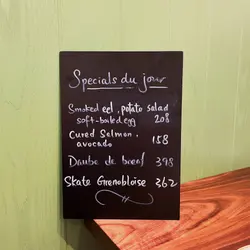 Specials du jour
Smoked eel, potato salad
soft-boiled egg 208
Cured Salmon,
avocado 158
Daube de bœuf 398
Skate Grenobloise 362